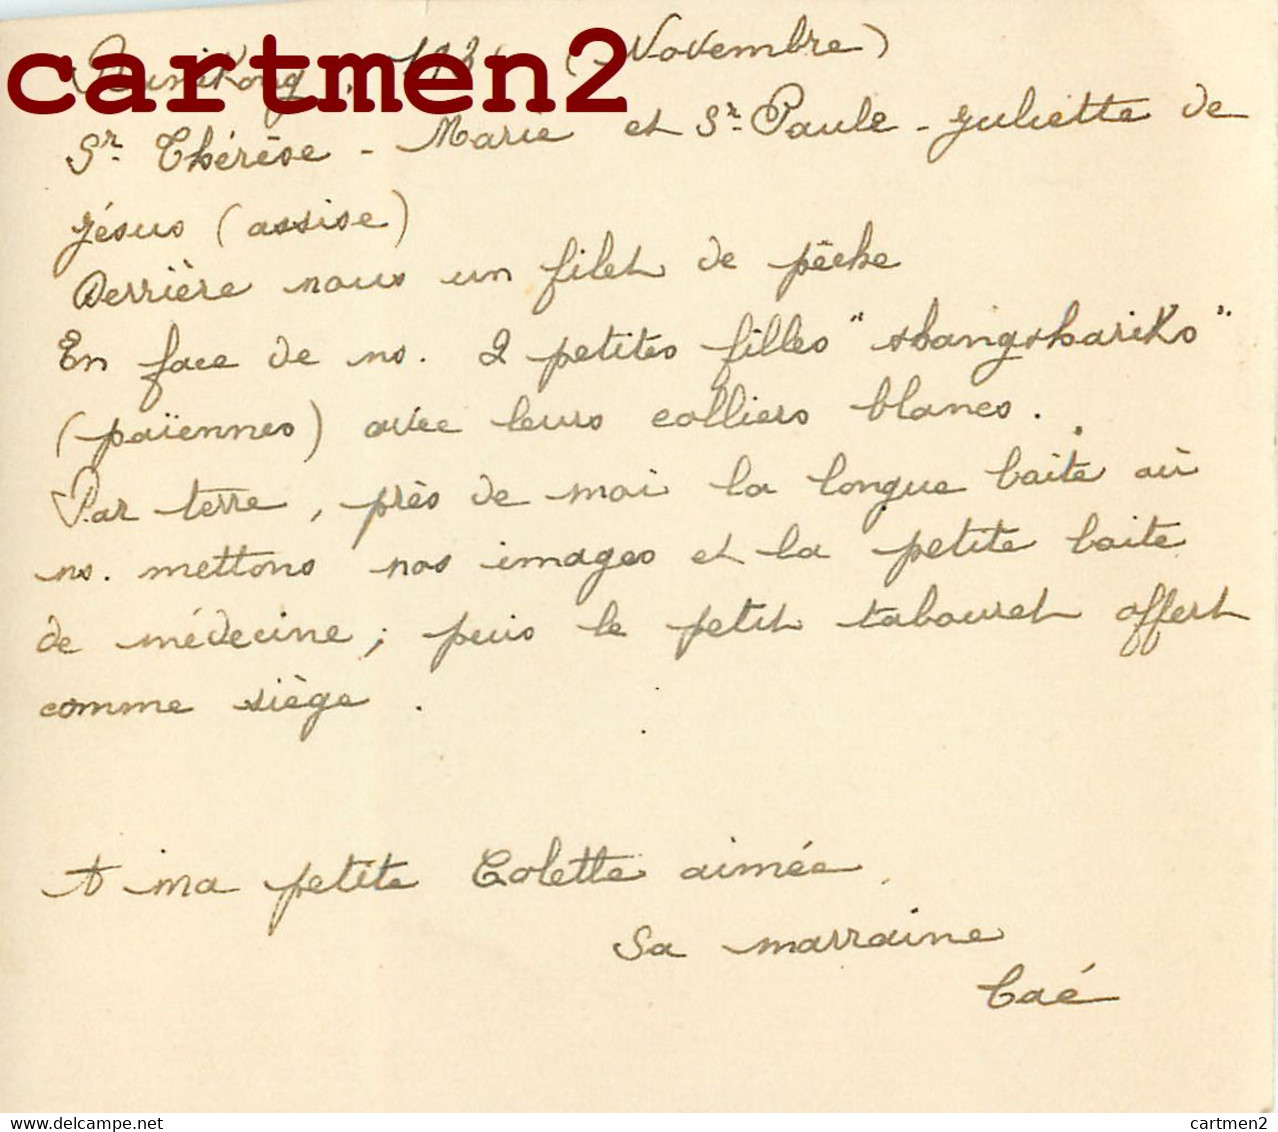 cartmen2
(Novembre)
Sr. Thérèse - Marie et Sr. Paule - Juliette de
Jésus (assise)
Derrière nous un filet de pêche
En face de ns. 2 petites filles "shangshariks"
(païennes) avec leurs colliers blancs.
Par terre, près de moi la longue boite où
ns. mettons nos images et la petite boite
de médecine; puis le petit tabouret offert
comme siège.
A ma petite Colette aimée,
Sa marraine
cartmen2